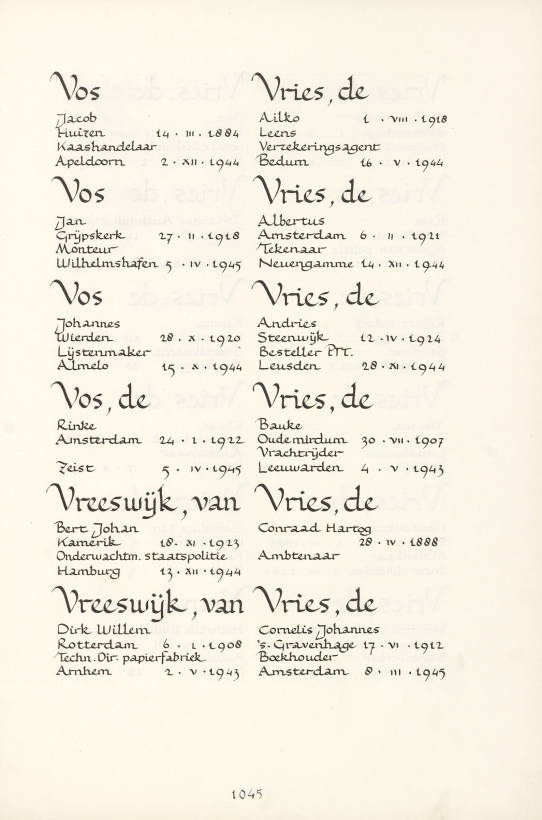 Vos
Jacob
Huizen 14 · III · 1884
Kaashandelaar
Apeldoorn 2 · XII · 1944
Vos
Jan
Grijpskerk 27 · II · 1918
Monteur
Wilhelmshafen 5 · IV · 1945
Vos
Johannes
Wierden 28 · X · 1920
Lijstenmaker
Almelo 15 · X · 1944
Vos, de
Rinke
Amsterdam 24 · I · 1922
Zeist 5 · IV · 1945
Vreeswijk, van
Bert Johan
Kamerik 18 · XI · 1923
Onderwachtm. staatspolitie
Hamburg 13 · XII · 1944
Vreeswijk, van
Dirk Willem
Rotterdam 6 · I · 1908
Techn. Dir. papierfabriek
Arnhem 2 · V · 1943
Vries, de
Ailko 1 · VIII · 1918
Leens
Verzekeringsagent
Bedum 16 · V · 1944
Vries, de
Albertus
Amsterdam 6 · II · 1921
Tekenaar
Neuengamme 14 · XII · 1944
Vries, de
Andries
Steenwijk 12 · IV · 1924
Besteller PTT.
Leusden 28 · XI · 1944
Vries, de
Bauke
Oudemirdum 30 · VII · 1907
Vrachtrijder
Leeuwarden 4 · V · 1943
Vries, de
Conraad Hartog
28 · IV · 1888
Ambtenaar
Vries, de
Cornelis Johannes
's-Gravenhage 17 · VI · 1912
Boekhouder
Amsterdam 8 · III · 1945
1045